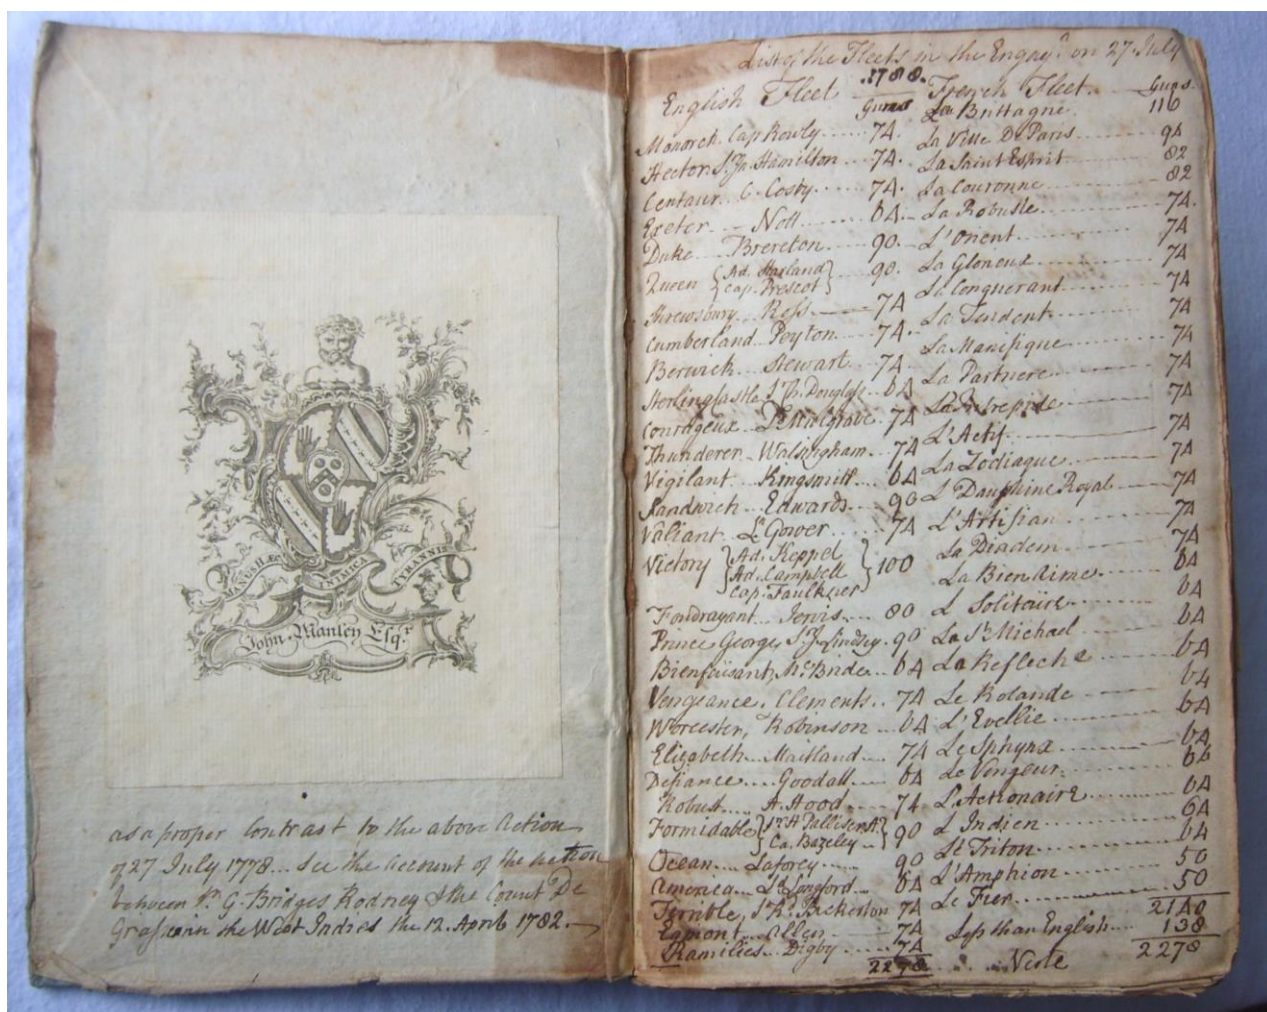 MANUS HÆC INIMICA TYRANNIS
John Manley Esqr
as a proper Contrast to the above Action
of 27 July 1778... see the account of the action
between Sr G. Bridges Rodney & the Count De
Grasse in the West Indies the 12. April 1782.
List of the Fleets in the Engagt on 27. July
1788.
English Fleet
Guns
Monarch. Cap Rowly 74.
Hector. Sr Ja. Hamilton 74.
Centaur. C. Cosby 74.
Exeter Nott 64.
Duke Brereton 90.
Queen {Ad. Harland Cap. Prescot} 90.
Shrewsbury Ross 74
Cumberland Peyton 74.
Berwick Stewart 74
Sterling Castle Sr Douglass 64
Courageux Ld Mulgrave 74
Thunderer Walsingham 74
Vigilant Kingsmill 64
Sandwich Edwards 90
Valiant Ld Gower 74
Victory {Ad. Keppel Ad. Campbell Cap. Faulkner} 100
Foudrayant Jervis 80
Prince George, Sr J. Lindsey. 90
Bienfaisant, McBride 64
Vengeance. Clements 74
Worcester, Robinson 64
Elizabeth Maitland 74
Defiance Goodall 64
Robust A. Hood 74
Formidable {Sr H Palliser Ca. Bazeley} 90
Ocean Laforey 90
America Ld Longford 64
Terrible, Sr R. Bickerton 74
Egmont Allen 74
Ramilies Digby 74
2278
French Fleet
Guns.
La Brittagne 110
La Ville De Paris 94
La Saint Esprit 82
La Couronne 82
La Robuste 74.
L'Orient 74
La Glorieux 74
La Conquerant 74
La Tendent 74
La Manifique 74
La Partnere 74
La Intrepide 74
L'Actif 74
La Zodiaque 74
L'Dauphine Royal 74
L'Artisian 74
La Diadem 74
La Bien Aime 64
L Solitaire 64
La St Michael 64
La Reflechz 64
Le Rolande 64
L'Evellie 64
Le Sphynx 64
Le Vengeur. 64
L'Actionaire 64
L Indien 64
Le Triton 64
L'Amphion 50
Le Fier 50
2140
Less than English 138
2278